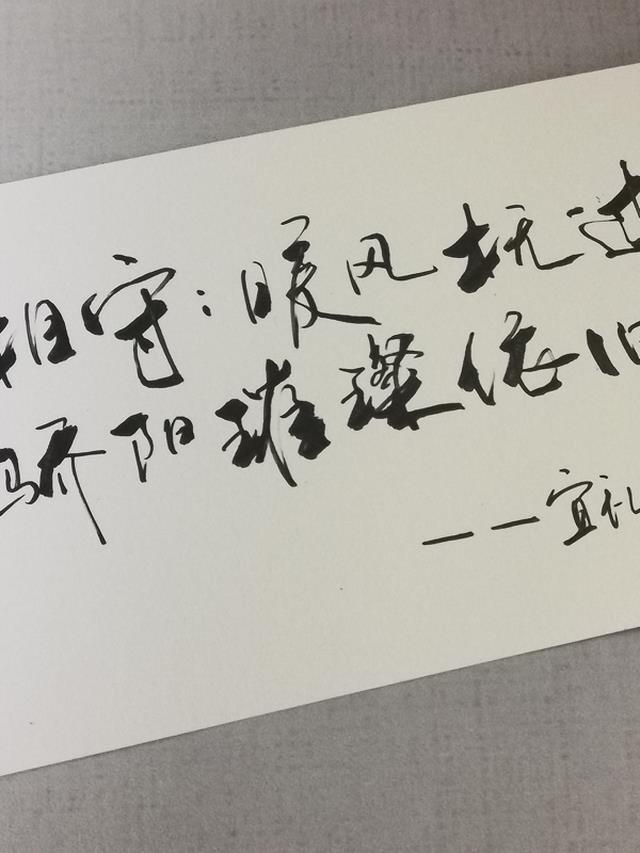 相守:暖风抚过
骄阳璀璨依旧
——宜礼